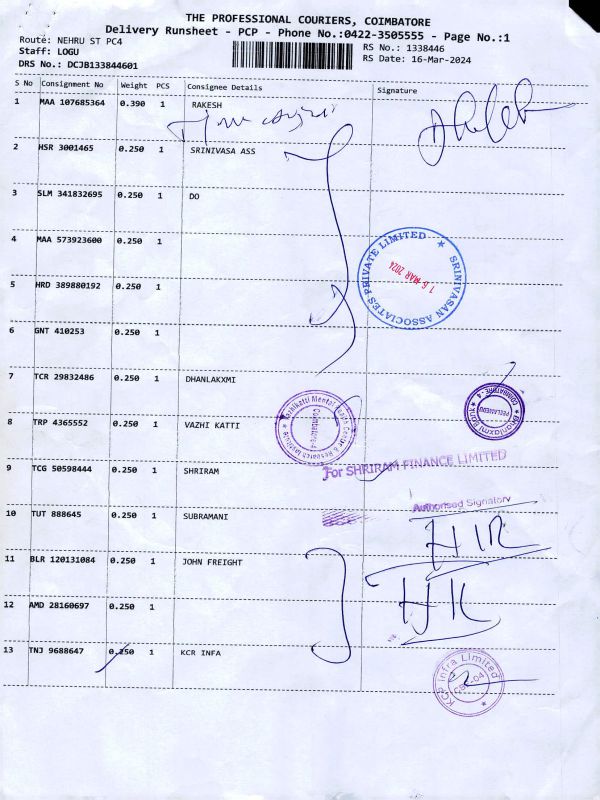 THE PROFESSIONAL COURIERS, COIMBATORE
Delivery Runsheet - PCP - Phone No.:0422-3505555 - Page No.:1
Route: NEHRU ST PC4
Staff: LOGU
DRS No.: DCJB133844601
RS No.: 1338446
RS Date: 16-Mar-2024
S No Consignment No Weight PCS Consignee Details Signature
1 MAA 107685364 0.390 1 RAKESH
2 HSR 3001465 0.250 1 SRINIVASA ASS
3 SLM 341832695 0.250 1 DO
4 MAA 573923600 0.250 1
PRIVATE LIMITED ★ SRINIVASAN ASSOCIATES
16 MAR 2024
5 HRD 389880192 0.250 1
6 GNT 410253 0.250 1
7 TCR 29832486 0.250 1 DHANLAKXMI
8 TRP 4365552 0.250 1 VAZHI KATTI
Vazhikatti Mental Health Centre & Research Institute
Coimbatore-4
COIMBATORE-4
PEELAMEDU
9 TCG 50598444 0.250 1 SHRIRAM
For SHRIRAM FINANCE LIMITED
Authorised Signatory
10 TUT 888645 0.250 1 SUBRAMANI
11 BLR 120131084 0.250 1 JOHN FREIGHT
12 AMD 28160697 0.250 1
13 TNJ 9688647 0.250 1 KCR INFA
Infra Limited